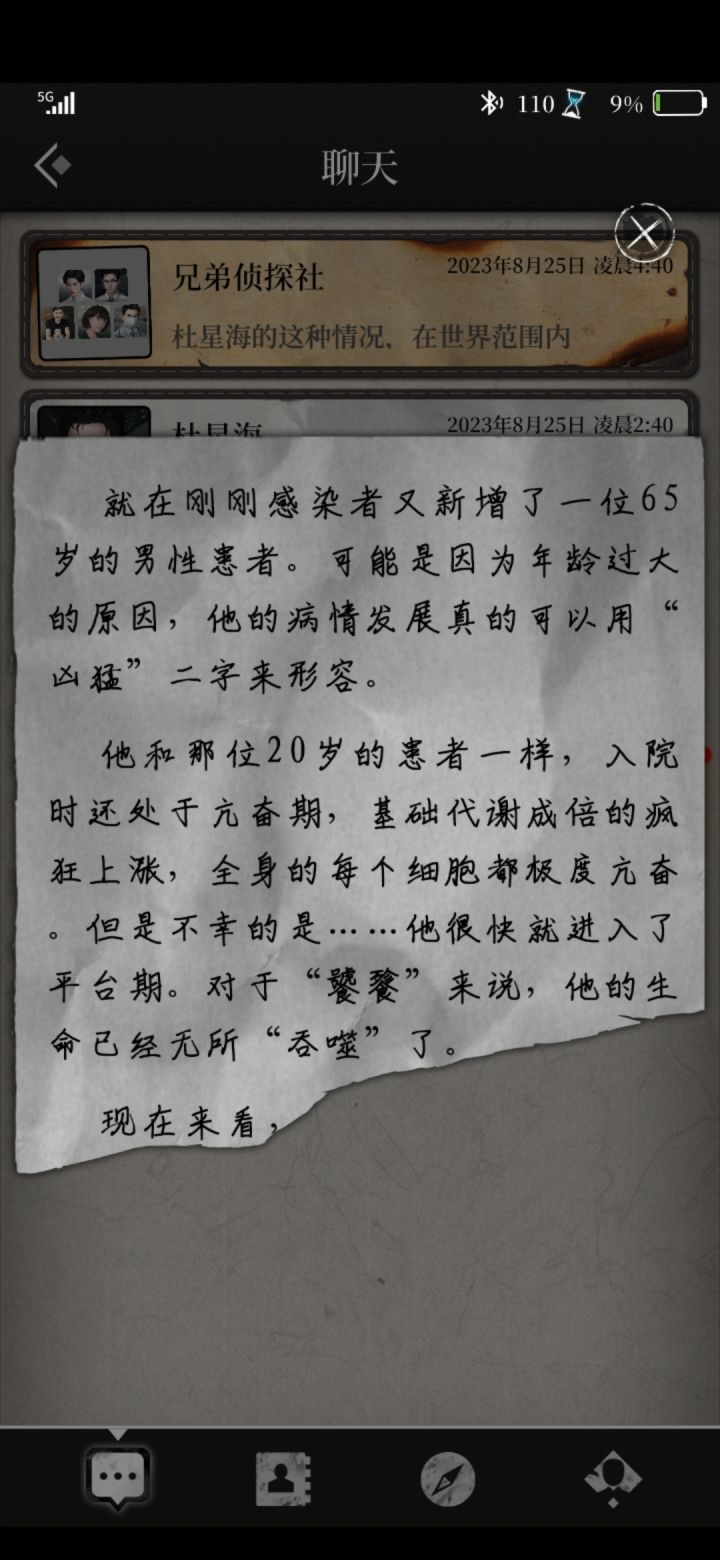 5G 110 9%
聊天
兄弟侦探社 2023年8月25日 凌晨4:40
杜星海的这种情况，在世界范围内
杜星海 2023年8月25日 凌晨2:40
就在刚刚感染者又新增了一位65
岁的男性患者。可能是因为年龄过大
的原因，他的病情发展真的可以用“
凶猛”二字来形容。
他和那位20岁的患者一样，入院
时还处于亢奋期，基础代谢成倍的疯
狂上涨，全身的每个细胞都极度亢奋
。但是不幸的是……他很快就进入了
平台期。对于“饕餮”来说，他的生
命已经无所“吞噬”了。
现在来看，